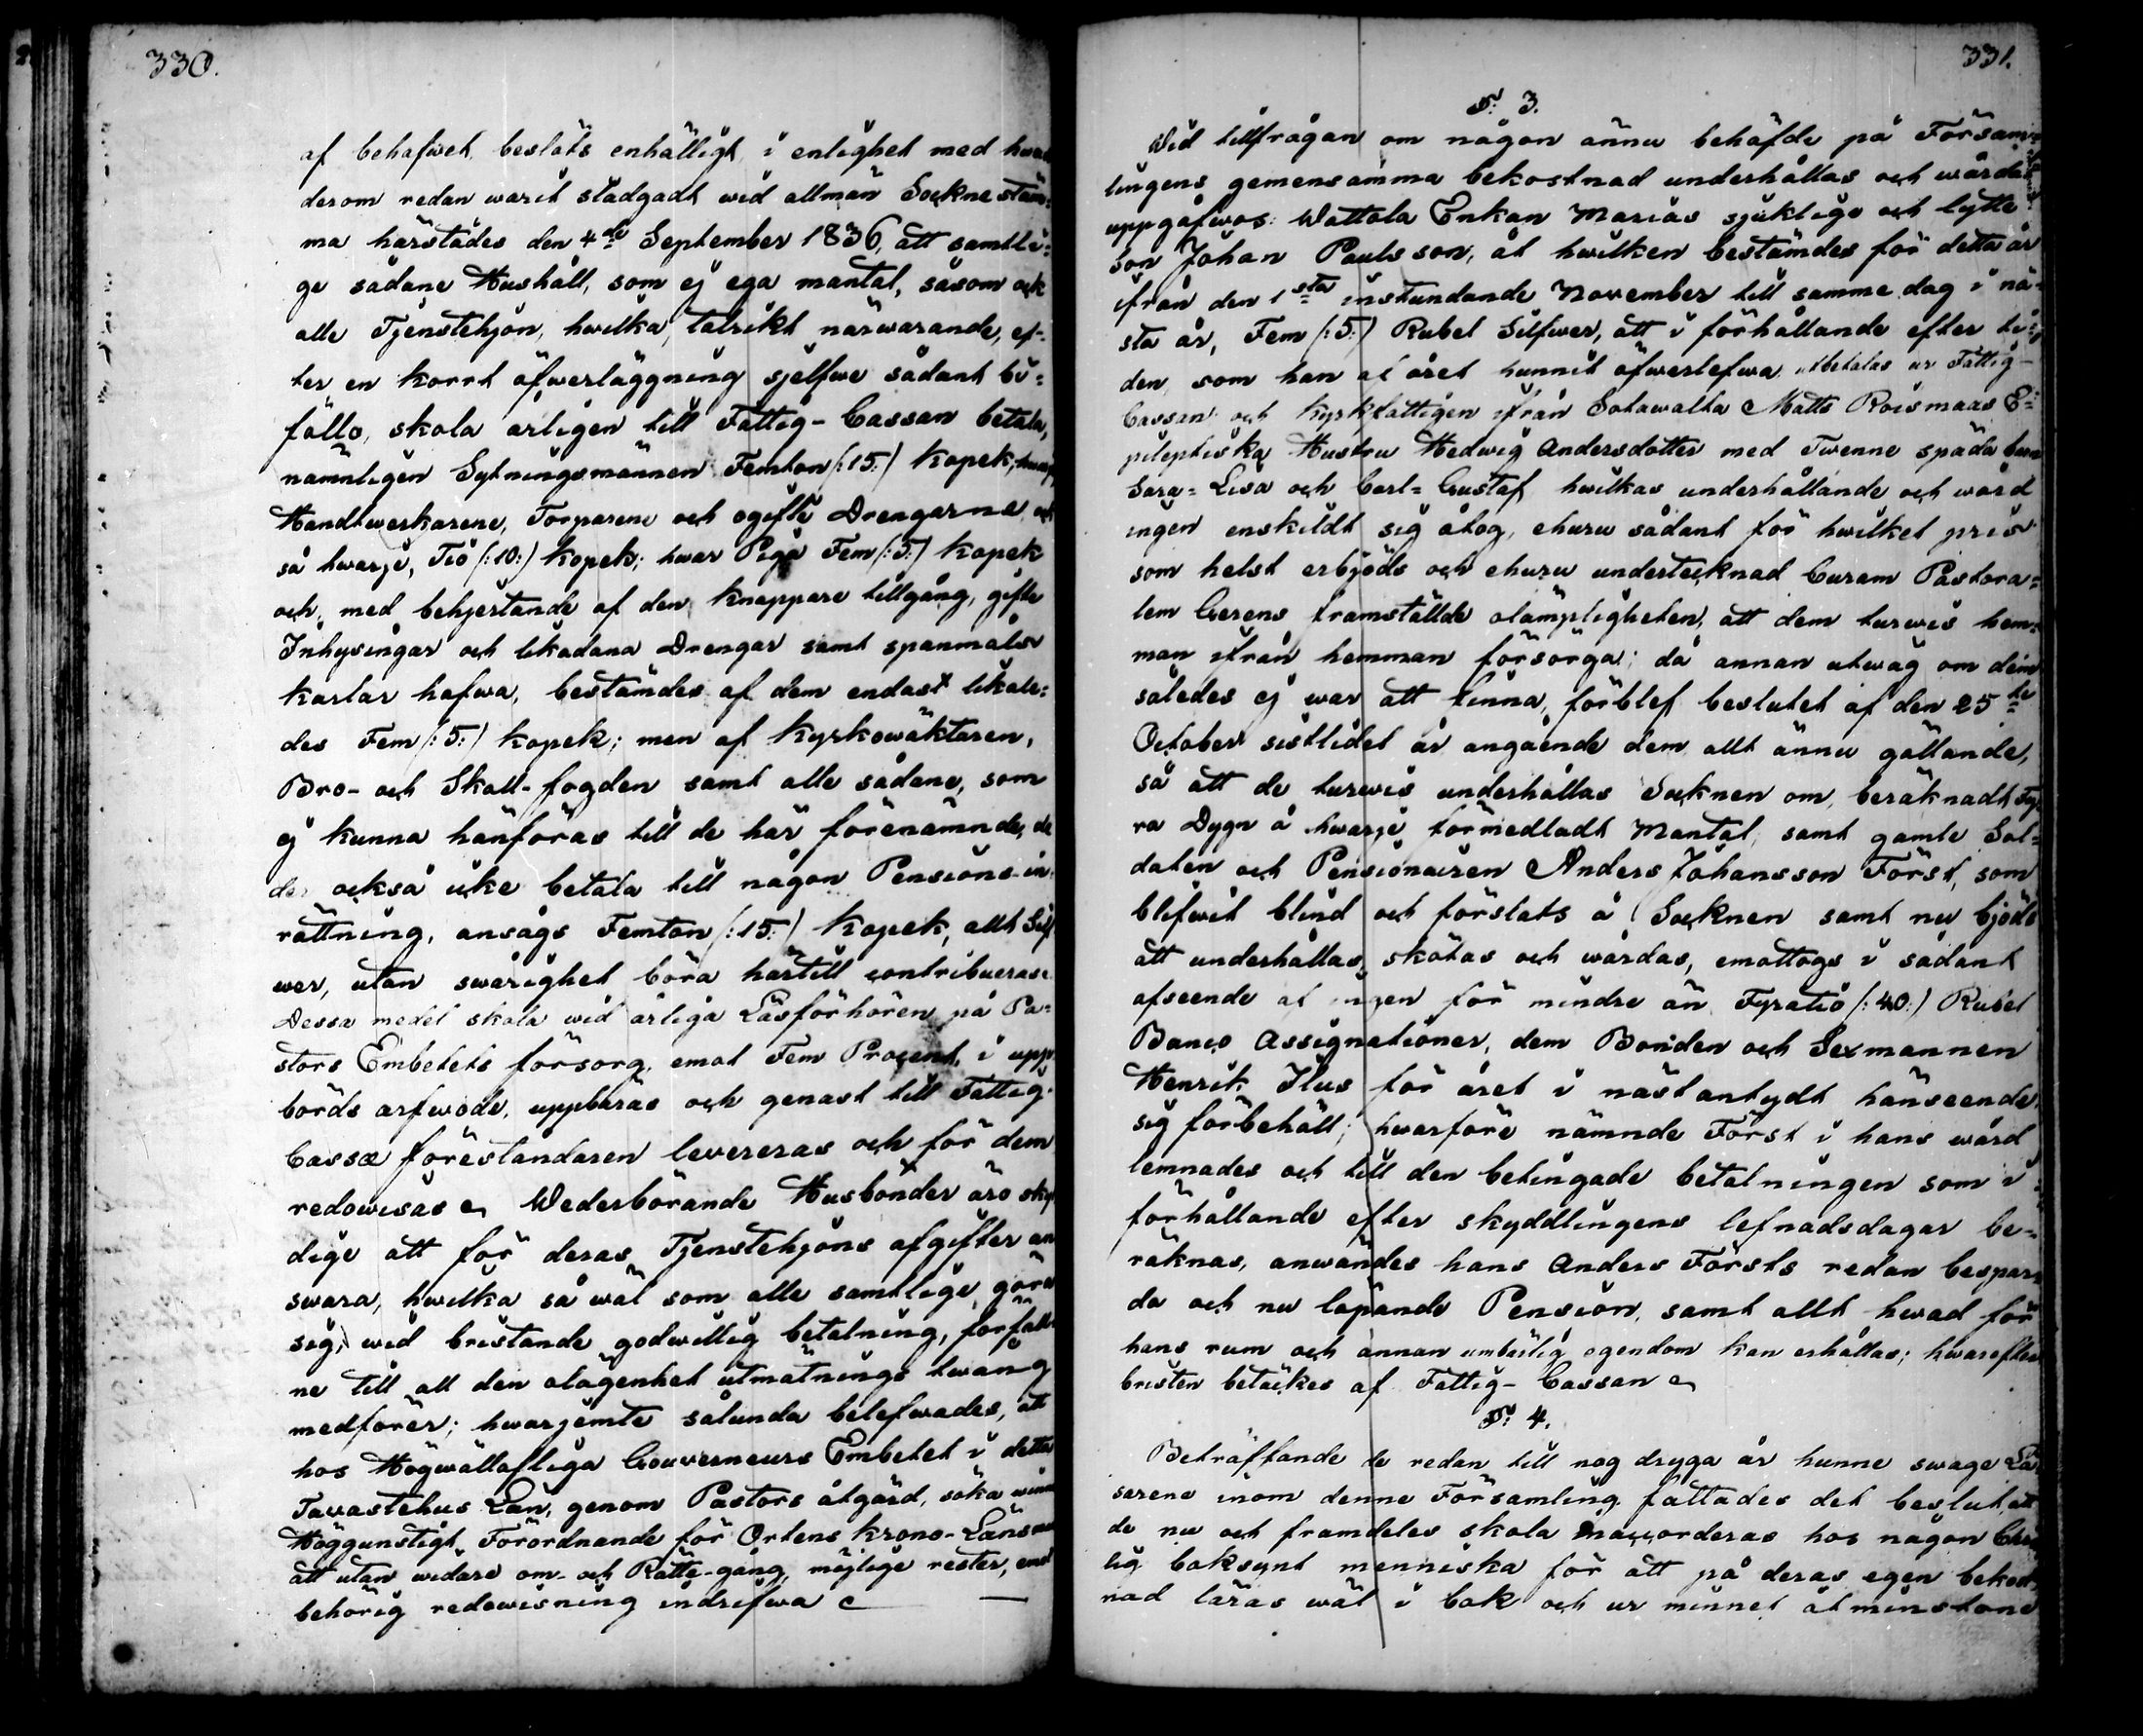 330.
af behofwet, beslöts enhälligt, i enlighet med hwad
derom redan warit stadgadt wid allmän Sockne stäm=
ma härstädes den 4de September 1836, att samtli=
ge sådane Hushåll, som ej ega mantal, såsom ock
alle Tjenstehjon, hwilka, talrikt närwarande, ef-
ter en korrt öfwerläggning sjelfwe sådant bi=
föllo, skola årligen till Fattig-Cassan betala,
nämnligen Sytningsmännen Femton (:15:) Kopek,
Handtwerkarene, Torparene och ogifte Drengarne
så hwarje, Tio (:10:) Kopek; hwar Piga Fem (:5:) Kopek
och, med behjertande af den knappare tillgång, gifte
Inhysingar och likadana Drengar samt spanmåls
karlar hafwa, bestämdes af dem endast likale=
des Fem (:5:) Kopek; men af Kyrkowäktaren,
Bro- och Skall-fogden samt alle sådane, som
ej kunna hänföras till de här förenämnde,
der också icke betala till någon Pensions-in
rättning, ansågs Femton (:15:) Kopek, allt Silf
wer, utan swårighet böra härtill contribueras.
Dessa medel skola wid årliga Läsförhören på Pa=
stors Embetets försorg, emot Fem Procent, i upp
börds arfwode, uppbäras och genast till Fattig-
Cassæ föreståndaren levereras och för dem
redowisas. Wederbörande Husbönder äro skyl
dige att för deras Tjenstehjons afgifter an
swara, hwilka så wäl som alle samtlige, göra
sig, wid bristande godwillig betalning, förfall
ne till all den olägenhet utmätnings twång
medförer; hwarjemte sålunda belefwades, att
hos Högwällofliga Gouverneurs Embetet i detta
Tavastehus Län, genom Pastors åtgärd, söka
Höggunstigt Förordnande för Ortens Krono-Länsman
att utan widare om- och Rätte-gång, möjlige rester, emot
behörig redowisning indrifwa

331.
§. 3.
Wid tillfrågan om någon ännu behöfde på Församm=
lingens gemensamma bekostnad underhållas och wårdas
uppgåfwos: Wattola Enkan Marias sjuklige och lytte
son Johan Paulsson, åt hwilken bestämdes för detta år
ifrån den 1sta instundande November till samma dag i nä-
sta år, Fem (:5:) Rubel Silfwer, att i förhållande efter ti=
den, som han af året hunnit öfwerlefwa utbetalas ur Fattig-
Cassan och Kyrkfattigen ifrån Sotawalta Matts Roismaas E=
pileptiska Hustru Hedwig Andersdotter med Twenne späda barn
Sara=Lisa och Carl=Gustaf, hwilkas underhållande och wård
ingen enskildt sig åtog, ehuru sådant för hwilket pris
som helst erbjöds och ehuru undertecknad Curam Pastora=
lem Gerens framställde olämpligheten, att dem turwis hem=
man ifrån hemman försörga; då annan utwäg om dem
således ej war att finna, förblef beslutet af den 25te
October sistlidet år angående dem allt ännu gällande,
så att de turwis underhållas Socknen om, beräknadt Fy
ra Dygn å hwarje förmedladt Mantal, samt gamle Sol=
daten och Pensionairen Anders Johansson Först, som
blifwit blind och förslats å Socknen samt nu bjöds
att underhållas, skötas och wårdas, emottogs i sådant
afseende af ingen för mindre än Fyratio (:40:) Rubel
Banco Assignationer, dem Bonden och Sexmannen
Henrik Ilus för året i nästantydt hänseende
sig förbehöll; hwarföre nämnde Först i hans wård
lemnades och till den betingade betalningen som i
förhållande efter skyddlingens lefnadsdagar be=
räknas, anwändes hans Anders Försts redan bespar
da och nu löpande Pension, samt allt hwad för
hans rum och annan umbärlig egendom kan erhållas; hwarefter
bristen betäckes af Fattig-Cassan
§. 4.
Beträffande de redan till nog dryga år hunne swage Lä
sarene inom denne Församling, fattades det beslut, att
de nu och framdeles skola inaccorderas hos någon
lig boksynt menniska för att på deras egen bekost
nad läras wäl i bok och ur minnet åtminstone